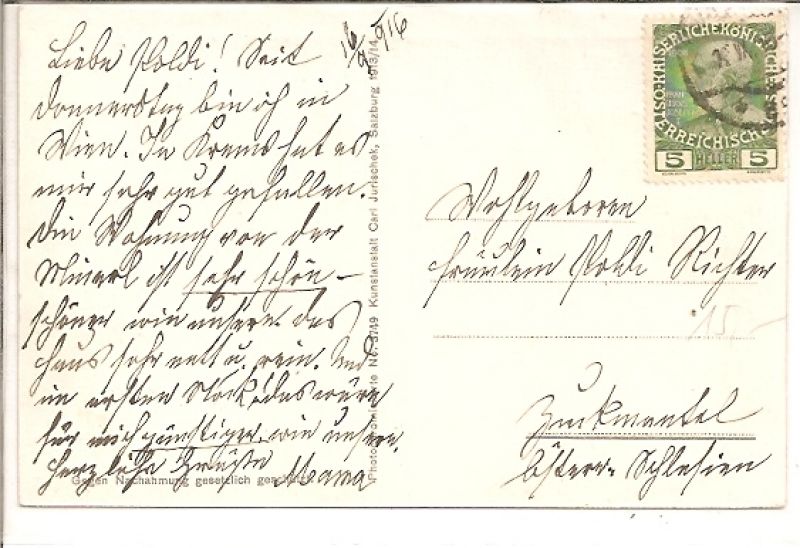 16/9 916
Liebe Poldi! Seit
Donnerstag bin ich in
Wien. In Krems hat es
mir sehr gut gefallen.
Die Wohnung von der
Minerl ist sehr schön –
schöner wie unsere. das
Haus sehr nett u. rein. Und
im ersten Stock! das wäre
für mich günstiger, wie unsere.
Herzliche Grüße Mama
Gegen Nachahmung gesetzlich geschützt.
Photochromiekarte No. 3749 Kunstanstalt Carl Jurischek, Salzburg 1913/14
KAISERLICHE KÖNIGLICHE
ÖSTERREICHISCHE
5 HELLER 5
Wohlgeboren
Fräulein Poldi Richter
15.–
Zuckmantel
Österr. Schlesien